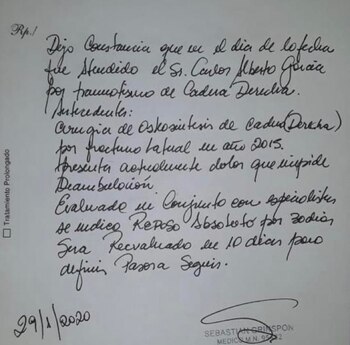 Rp./
Dejo Constancia que en el dia de la fecha
fue atendido el Sr. Carlos Alberto Garcia
por traumatismo de Cadera Derecha.
Antecedentes:
Cirugia de Osteosintesis de Cadera (Derecha)
por fractura lateral en año 2015.
Presenta actualmente dolor que impide
Deambulación
Evaluado en Conjunto con especialistas
se indica Reposo Absoluto por 30 dias
Sera Reevaluado en 10 dias para
definir Pasos a Seguir.
Tratamiento Prolongado
29/1/2020
SEBASTIAN GRINSPON
MEDICO M.N.